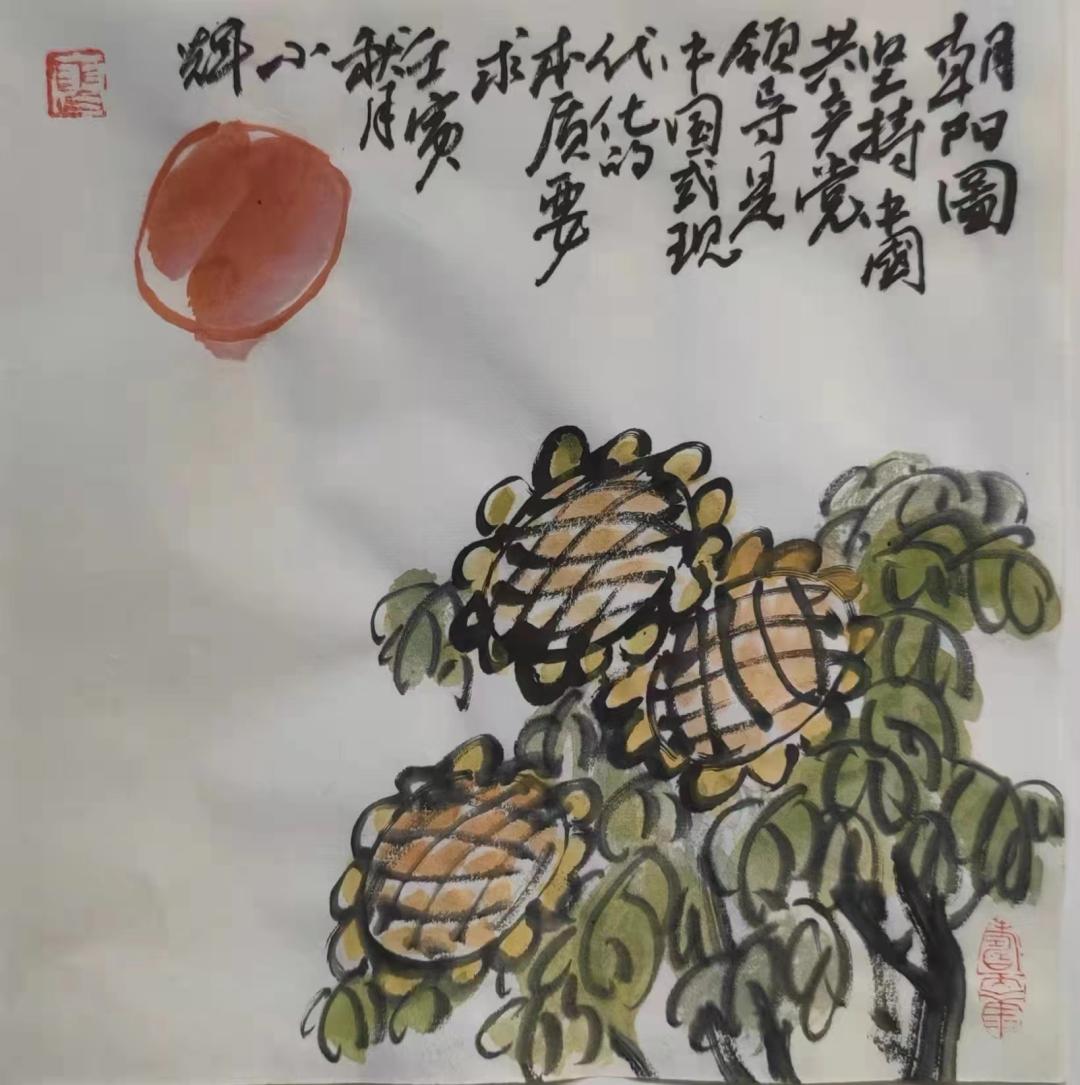 朝阳圖
坚持中國
共产党
领导是
中国式现
代化的
本质要
求
壬寅
秋月
小
辉